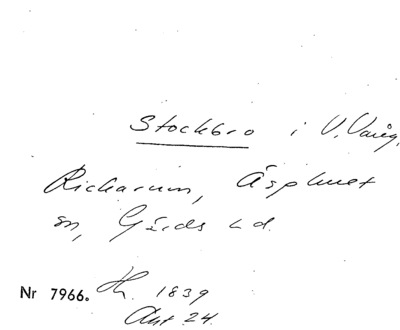 Stockbro i V. Vång,
Rickarum, Äsphult
sn, Gärds hd.
Nr 7966. 1839
Akt 24.